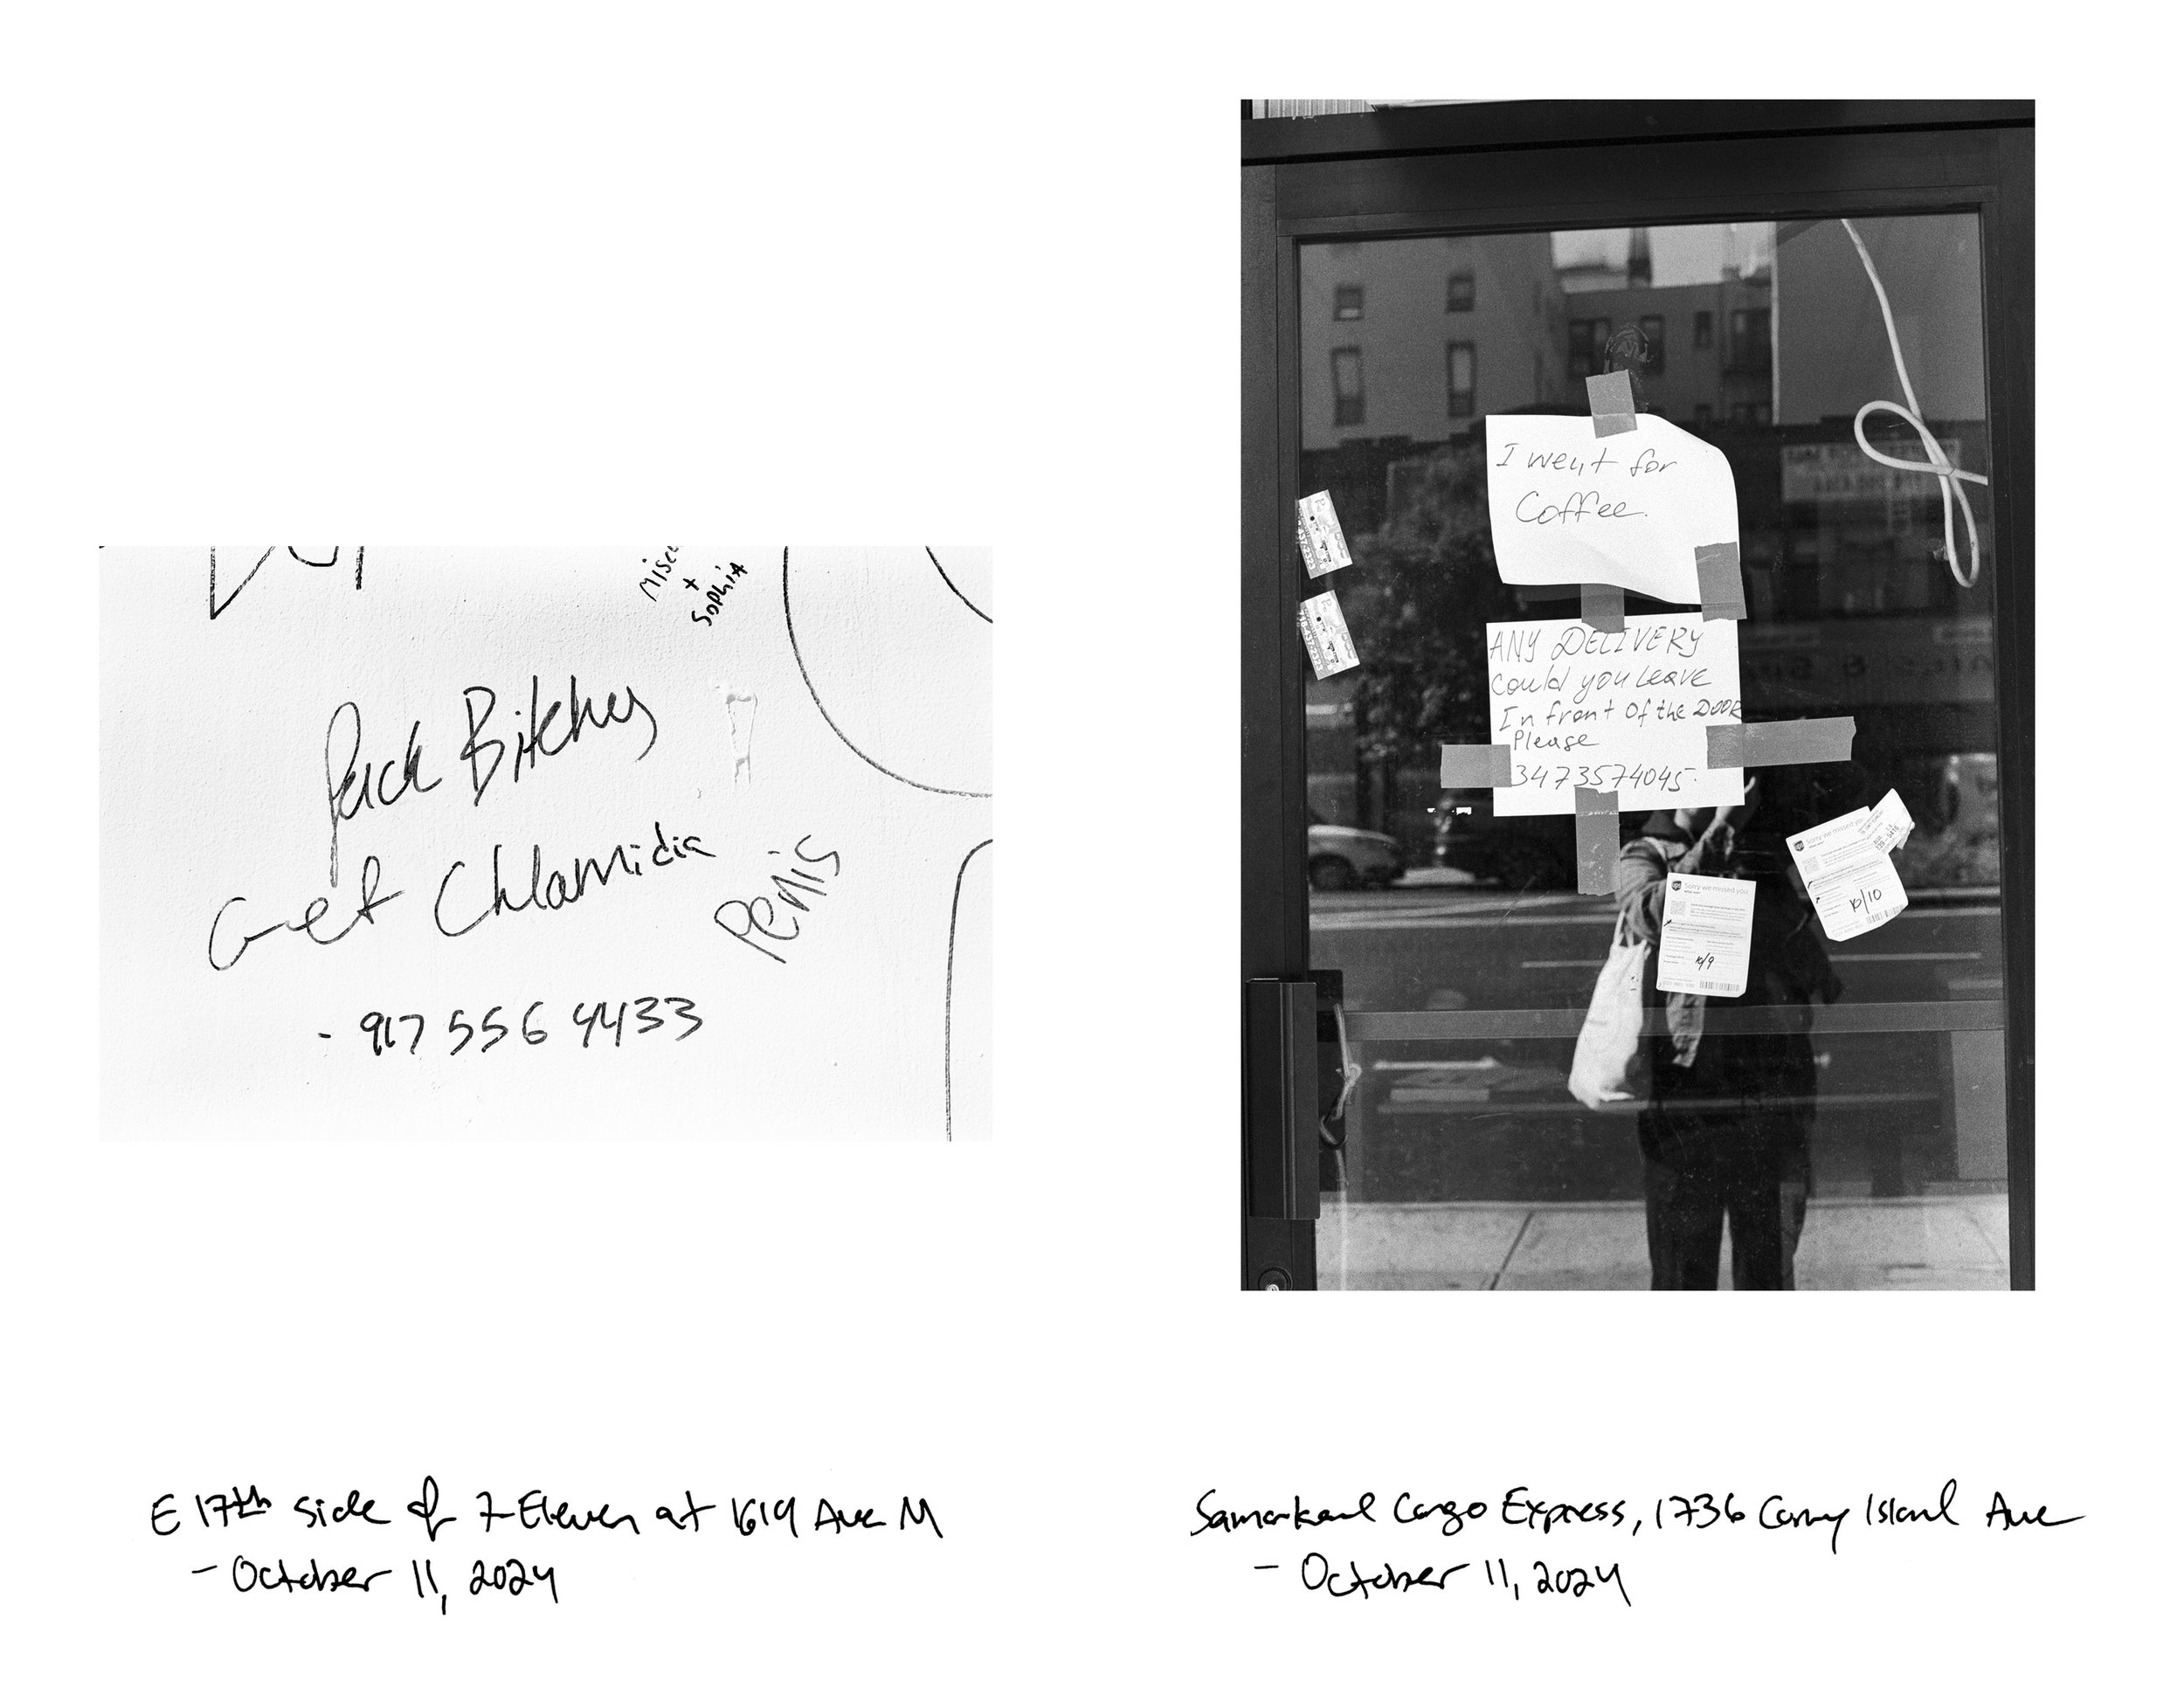 Misc
+
Sophia
Fuck Bitches
Get Chlamidia
Penis
- 917 556 4433
E 17th side of 7-Eleven at 1619 Ave M
- October 11, 2024
I went for
Coffee.
ANY DELIVERY
Could you Leave
In front Of the DOOR
Please
3473574045.
Sorry we missed you
10/10
Sorry we missed you
10/9
Samarkand Cargo Express, 1736 Coney Island Ave
- October 11, 2024